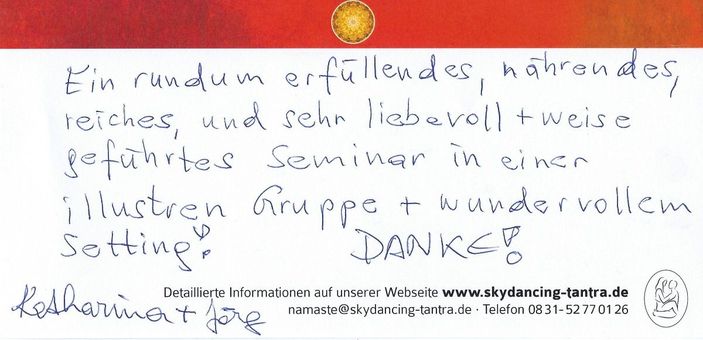 Ein rundum erfüllendes, nährendes,
reiches, und sehr liebevoll + weise
geführtes Seminar in einer
illustren Gruppe + wundervollem
Setting! DANKE!
Detaillierte Informationen auf unserer Webseite www.skydancing-tantra.de
Katharina + Jörg
namaste@skydancing-tantra.de · Telefon 08 31- 52 77 01 26